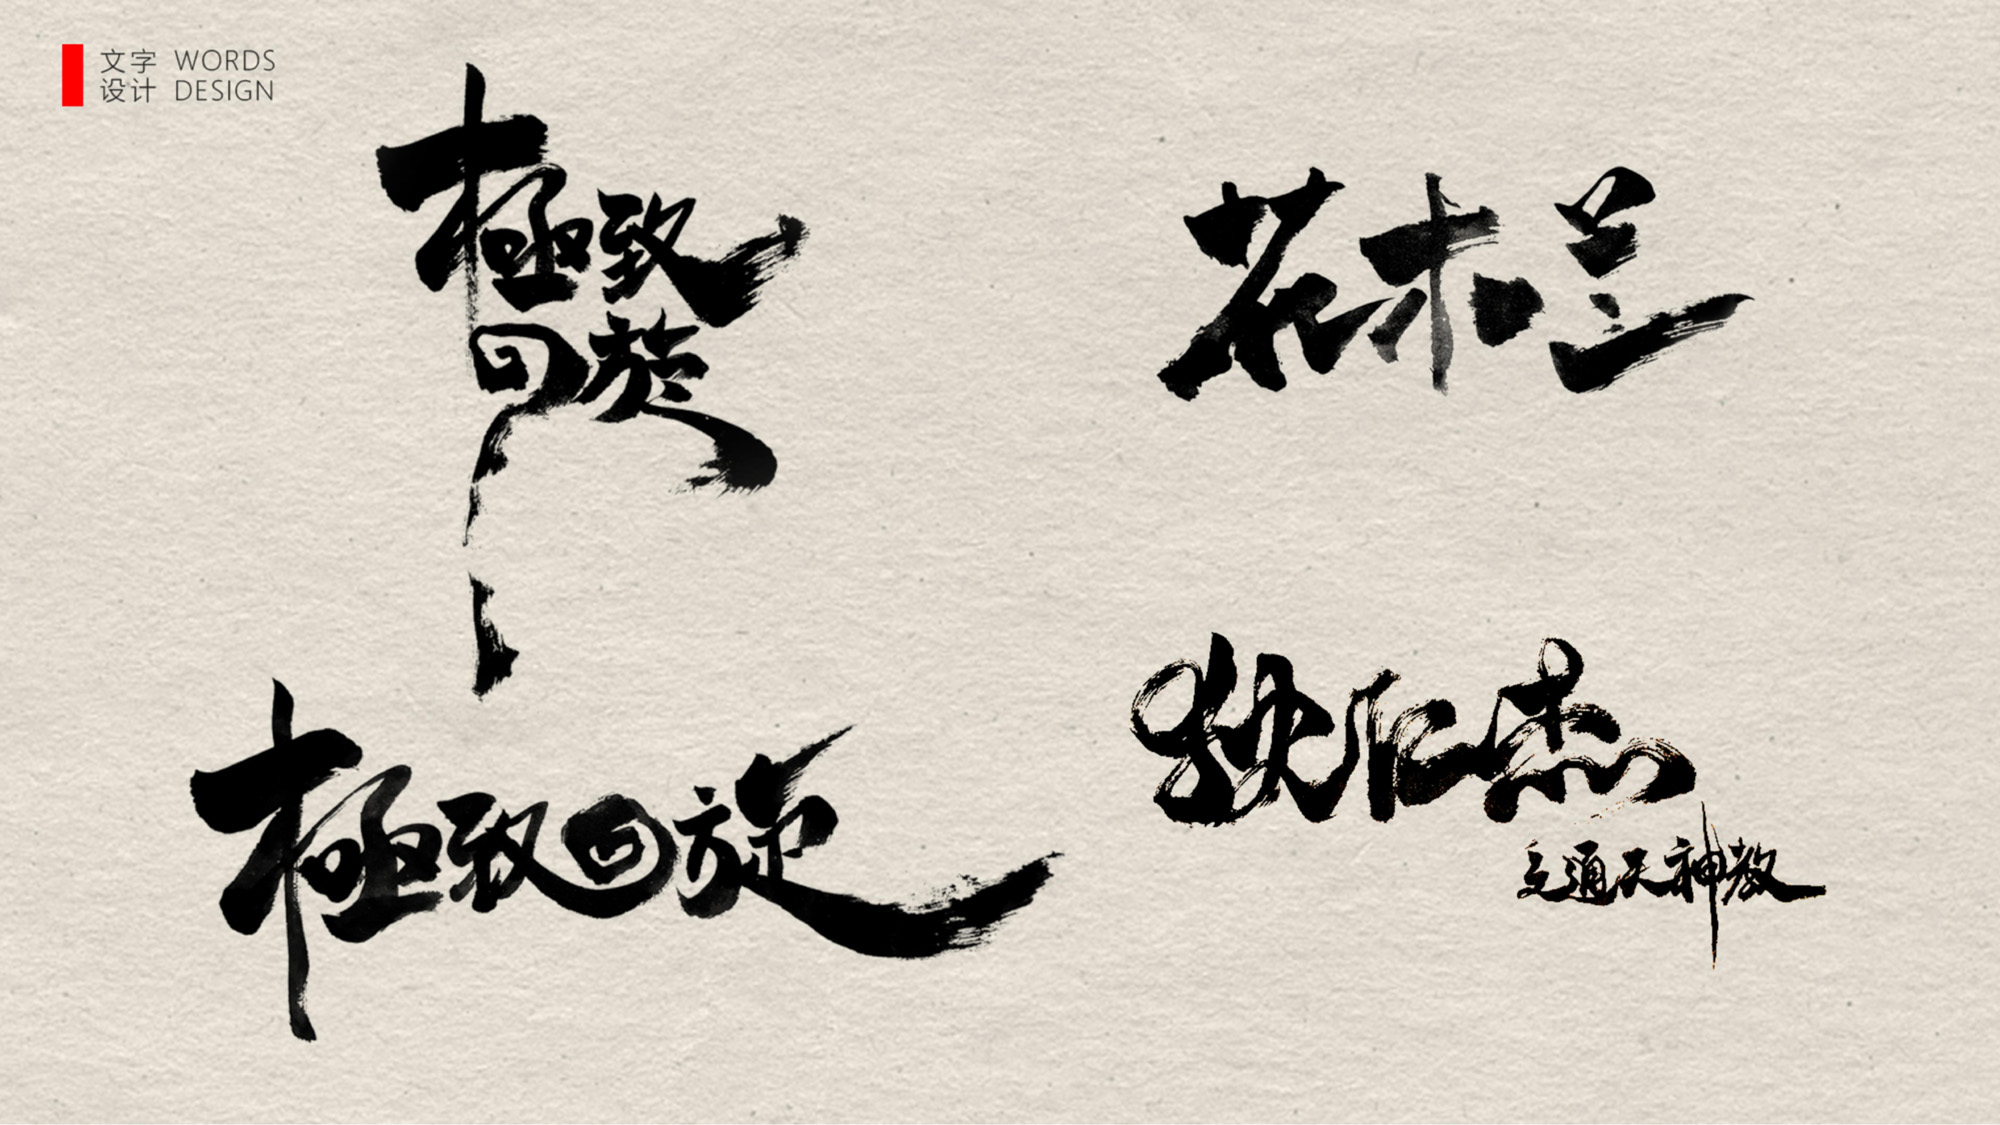 文字 WORDS
设计 DESIGN
極致
回旋
花木兰
極致回旋
狄仁杰
之通天神教